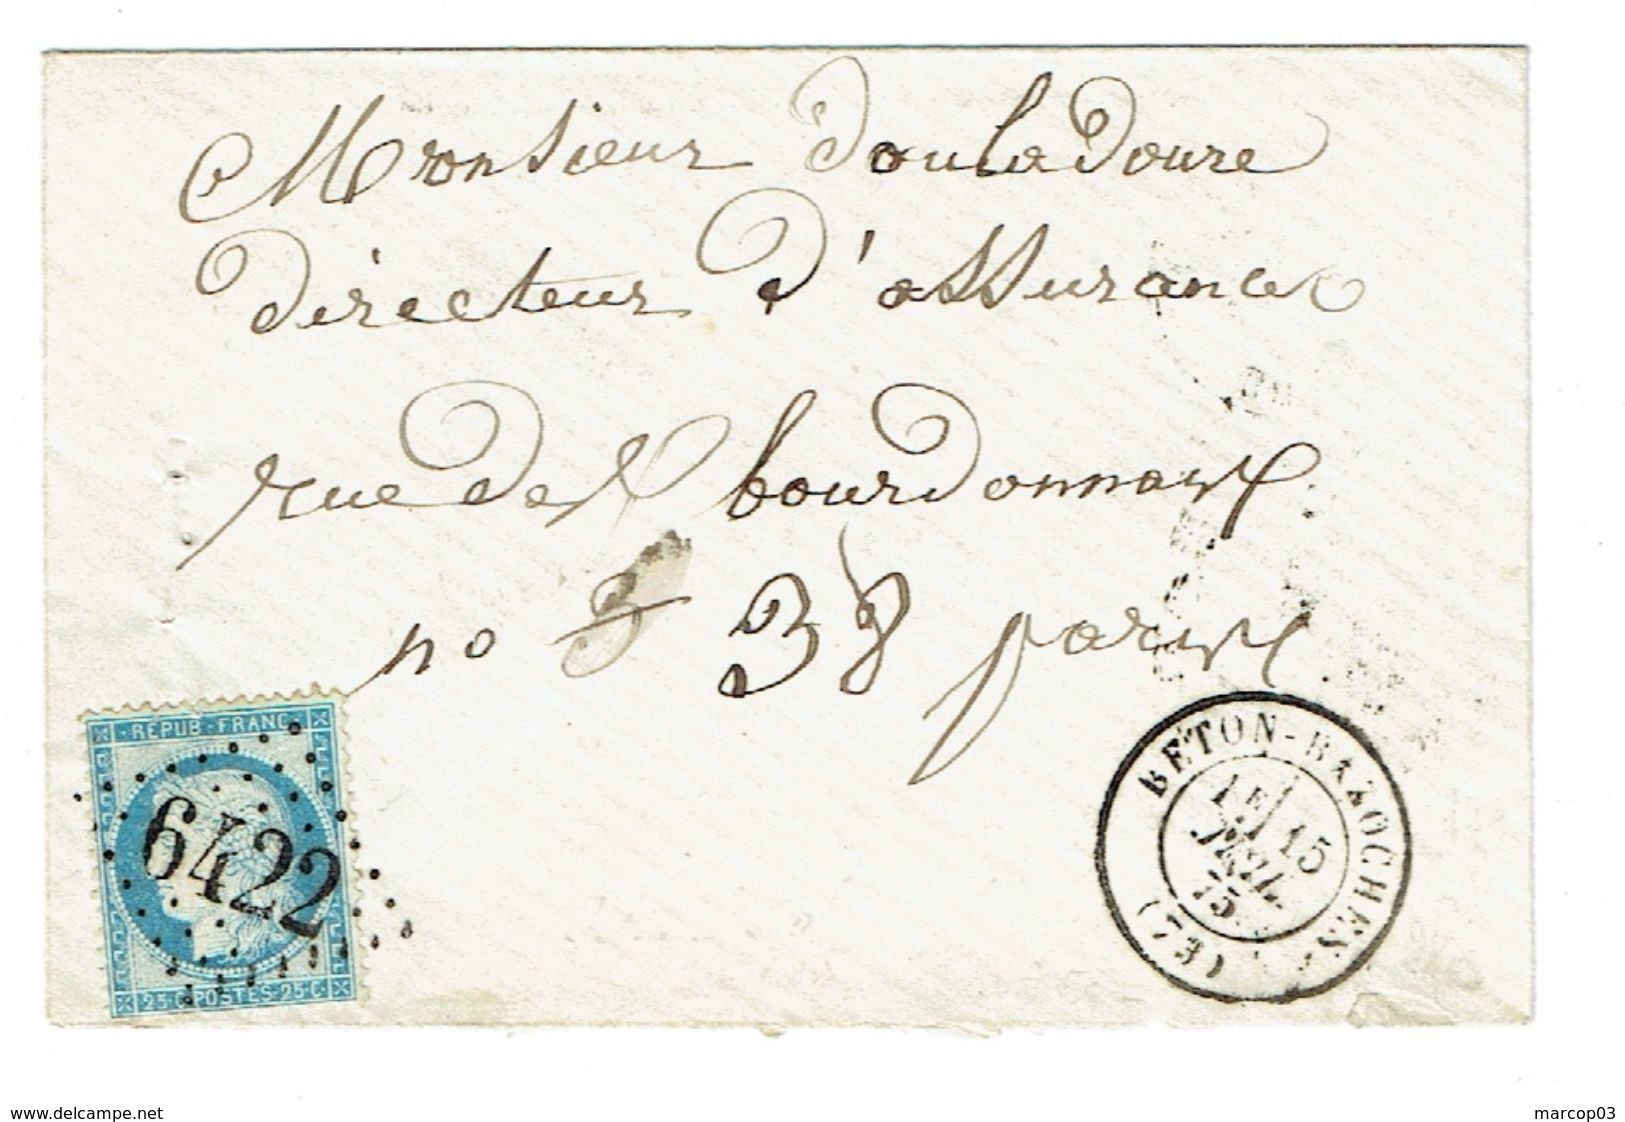 Monsieur Douladoure
directeur d'assurances
rue des bourdonnais
no 3 38 paris
REPUB · FRANC
6422
25·C·POSTES·25·C
BETON-BAZOCHES
1E
15
JUIL
75
(73)
www.delcampe.net
marcop03